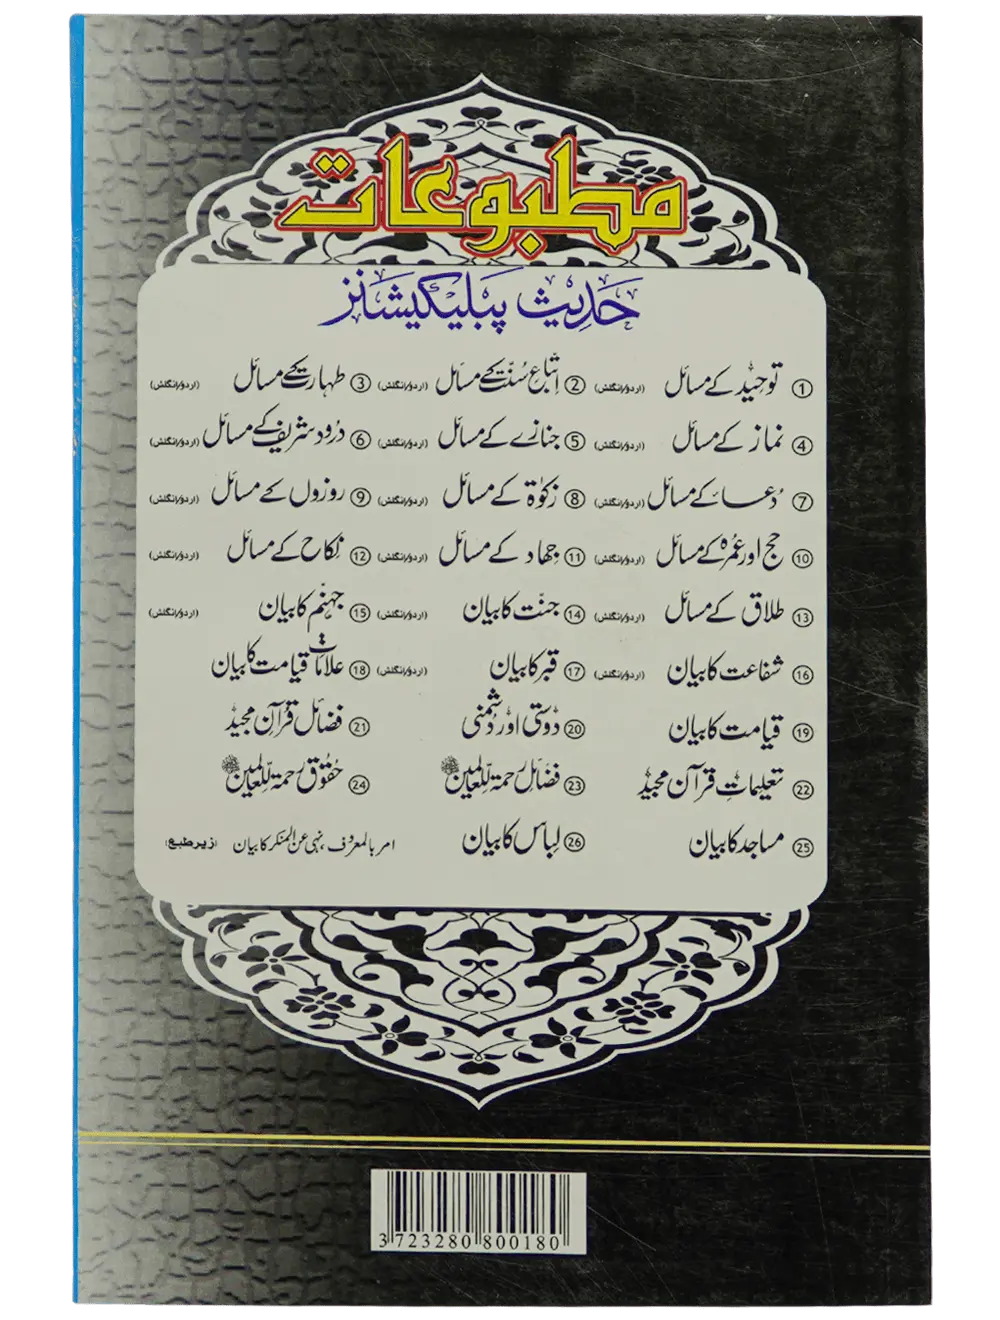 مطبوعات
حدیث پبلیکیشنز
① توحید کے مسائل (اردو/انگلش) ② اتباع سنت کے مسائل (اردو/انگلش) ③ طہارت کے مسائل (اردو/انگلش)
④ نماز کے مسائل (اردو/انگلش) ⑤ جنازے کے مسائل (اردو/انگلش) ⑥ درود شریف کے مسائل (اردو/انگلش)
⑦ دعا کے مسائل (اردو/انگلش) ⑧ زکوٰۃ کے مسائل (اردو/انگلش) ⑨ روزوں کے مسائل (اردو/انگلش)
⑩ حج اور عمرہ کے مسائل (اردو/انگلش) ⑪ جہاد کے مسائل (اردو/انگلش) ⑫ نکاح کے مسائل (اردو/انگلش)
⑬ طلاق کے مسائل (اردو/انگلش) ⑭ جنت کا بیان (اردو/انگلش) ⑮ جہنم کا بیان (اردو/انگلش)
⑯ شفاعت کا بیان (اردو/انگلش) ⑰ قبر کا بیان (اردو/انگلش) ⑱ علامات قیامت کا بیان
⑲ قیامت کا بیان ⑳ دوستی اور دشمنی ㉑ فضائل قرآن مجید
㉒ تعلیمات قرآن مجید ㉓ فضائل رحمۃ للعالمین ﷺ ㉔ حقوق رحمۃ للعالمین ﷺ
㉕ مساجد کا بیان ㉖ لباس کا بیان امر بالمعروف، نہی عن المنکر کا بیان (زیر طبع)
3 723280 800180